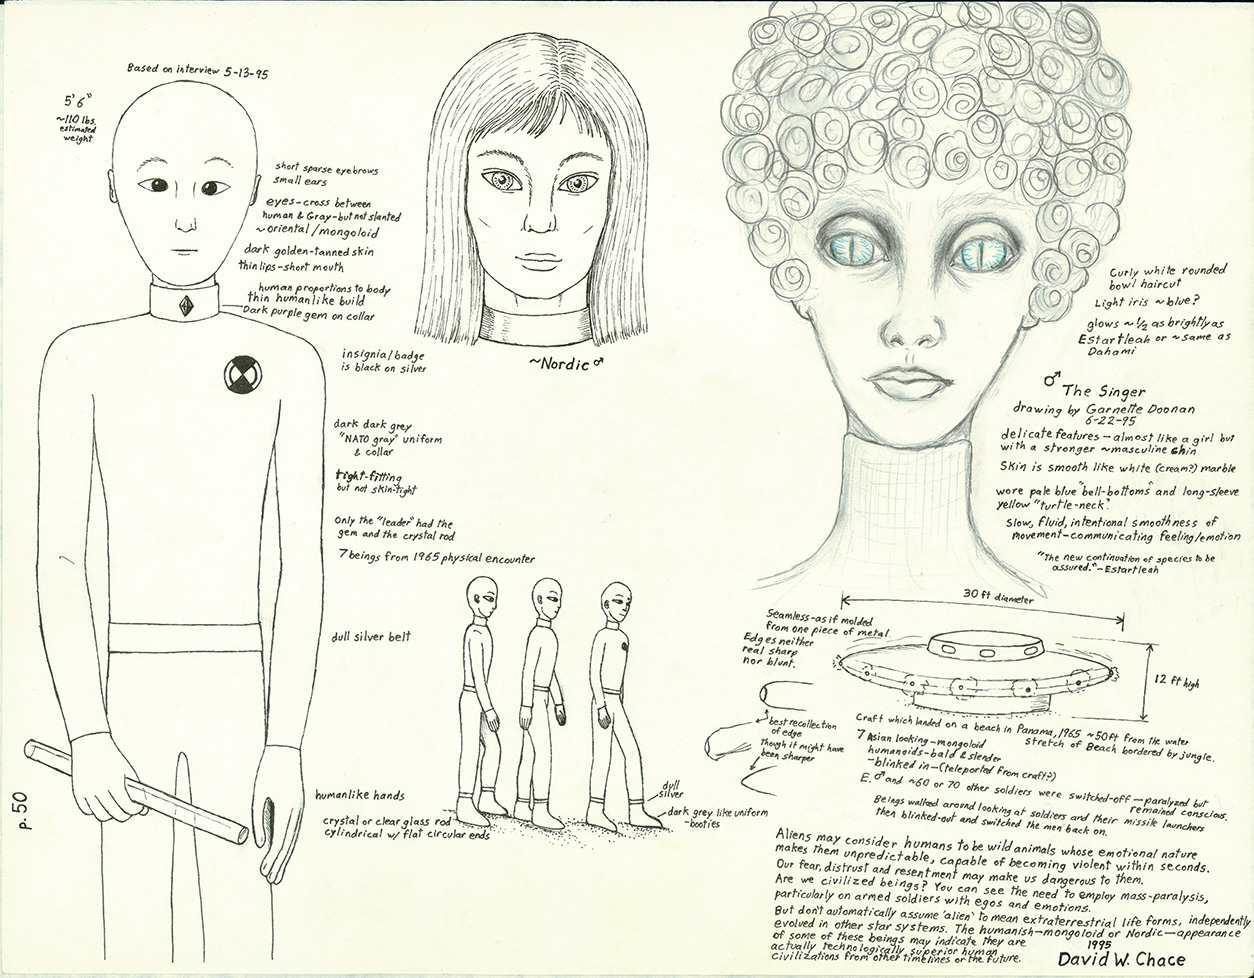 Based on interview 5-13-95
5'6"
~110 lbs.
estimated
weight
short sparse eyebrows
small ears
eyes-cross between
human & Gray-but not slanted
~oriental/mongoloid
dark golden-tanned skin
thin lips-short mouth
human proportions to body
thin humanlike build
Dark purple gem on collar
insignia/badge
is black on silver
dark dark grey
"NATO gray" uniform
& collar
tight-fitting
but not skin-tight
only the "leader" had the
gem and the crystal rod
7 beings from 1965 physical encounter
dull silver belt
humanlike hands
crystal or clear glass rod
cylindrical w/ flat circular ends
p. 50
~Nordic ♂
dull
silver
dark grey like uniform
-booties
Curly white rounded
bowl haircut
Light iris ~blue?
glows ~½ as brightly as
Estartleah or ~same as
Dahami
♂ The Singer
drawing by Garnette Doonan
6-22-95
delicate features-almost like a girl but
with a stronger ~masculine chin
Skin is smooth like white (cream?) marble
wore pale blue "bell-bottoms" and long-sleeve
yellow "turtle-neck".
slow, fluid, intentional smoothness of
movement-communicating feeling/emotion
"The new continuation of species to be
assured."-Estartleah
30 ft diameter
Seamless-as if molded
from one piece of metal.
Edges neither
real sharp
nor blunt.
12 ft high
best recollection
of edge
though it might have
been sharper
Craft which landed on a beach in Panama, 1965 ~50 ft from the water
stretch of Beach bordered by jungle.
7 Asian looking-mongoloid
humanoids-bald & slender
-blinked in-(teleported from craft?)
E. ♂ and ~60 or 70 other soldiers were switched-off-paralyzed but
remained conscious.
Beings walked around looking at soldiers and their missile launchers
then blinked-out and switched the men back on.
Aliens may consider humans to be wild animals whose emotional nature
makes them unpredictable, capable of becoming violent within seconds.
Our fear, distrust and resentment may make us dangerous to them.
Are we civilized beings? You can see the need to employ mass-paralysis,
particularly on armed soldiers with egos and emotions.
But don't automatically assume 'alien' to mean extraterrestrial life forms, independently
evolved in other star systems. The humanish-mongoloid or Nordic-appearance
of some of these beings may indicate they are
actually technologically superior human
civilizations from other timelines or the future.
1995
David W. Chace